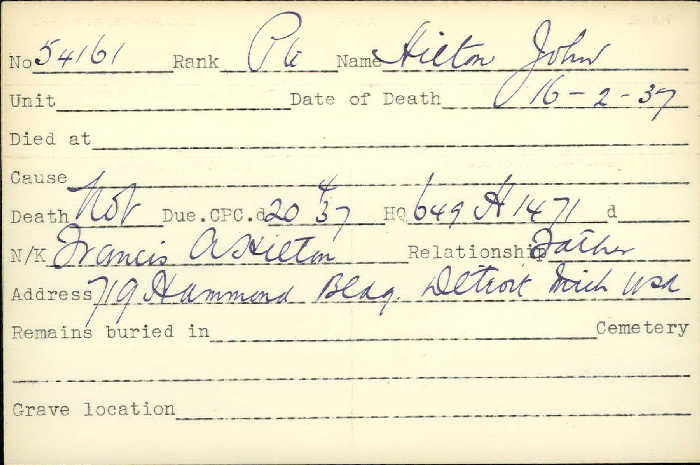 No 54161 Rank Pte Name Hilton John
Unit Date of Death 16-2-37
Died at
Cause
Death Not Due.CPC.d 20/4/37 HQ 649 H 1471 d
N/K Francis A Hilton Relationship Father
Address 719 Hammond Bldg. Detroit Mich USA
Remains buried in Cemetery
Grave location